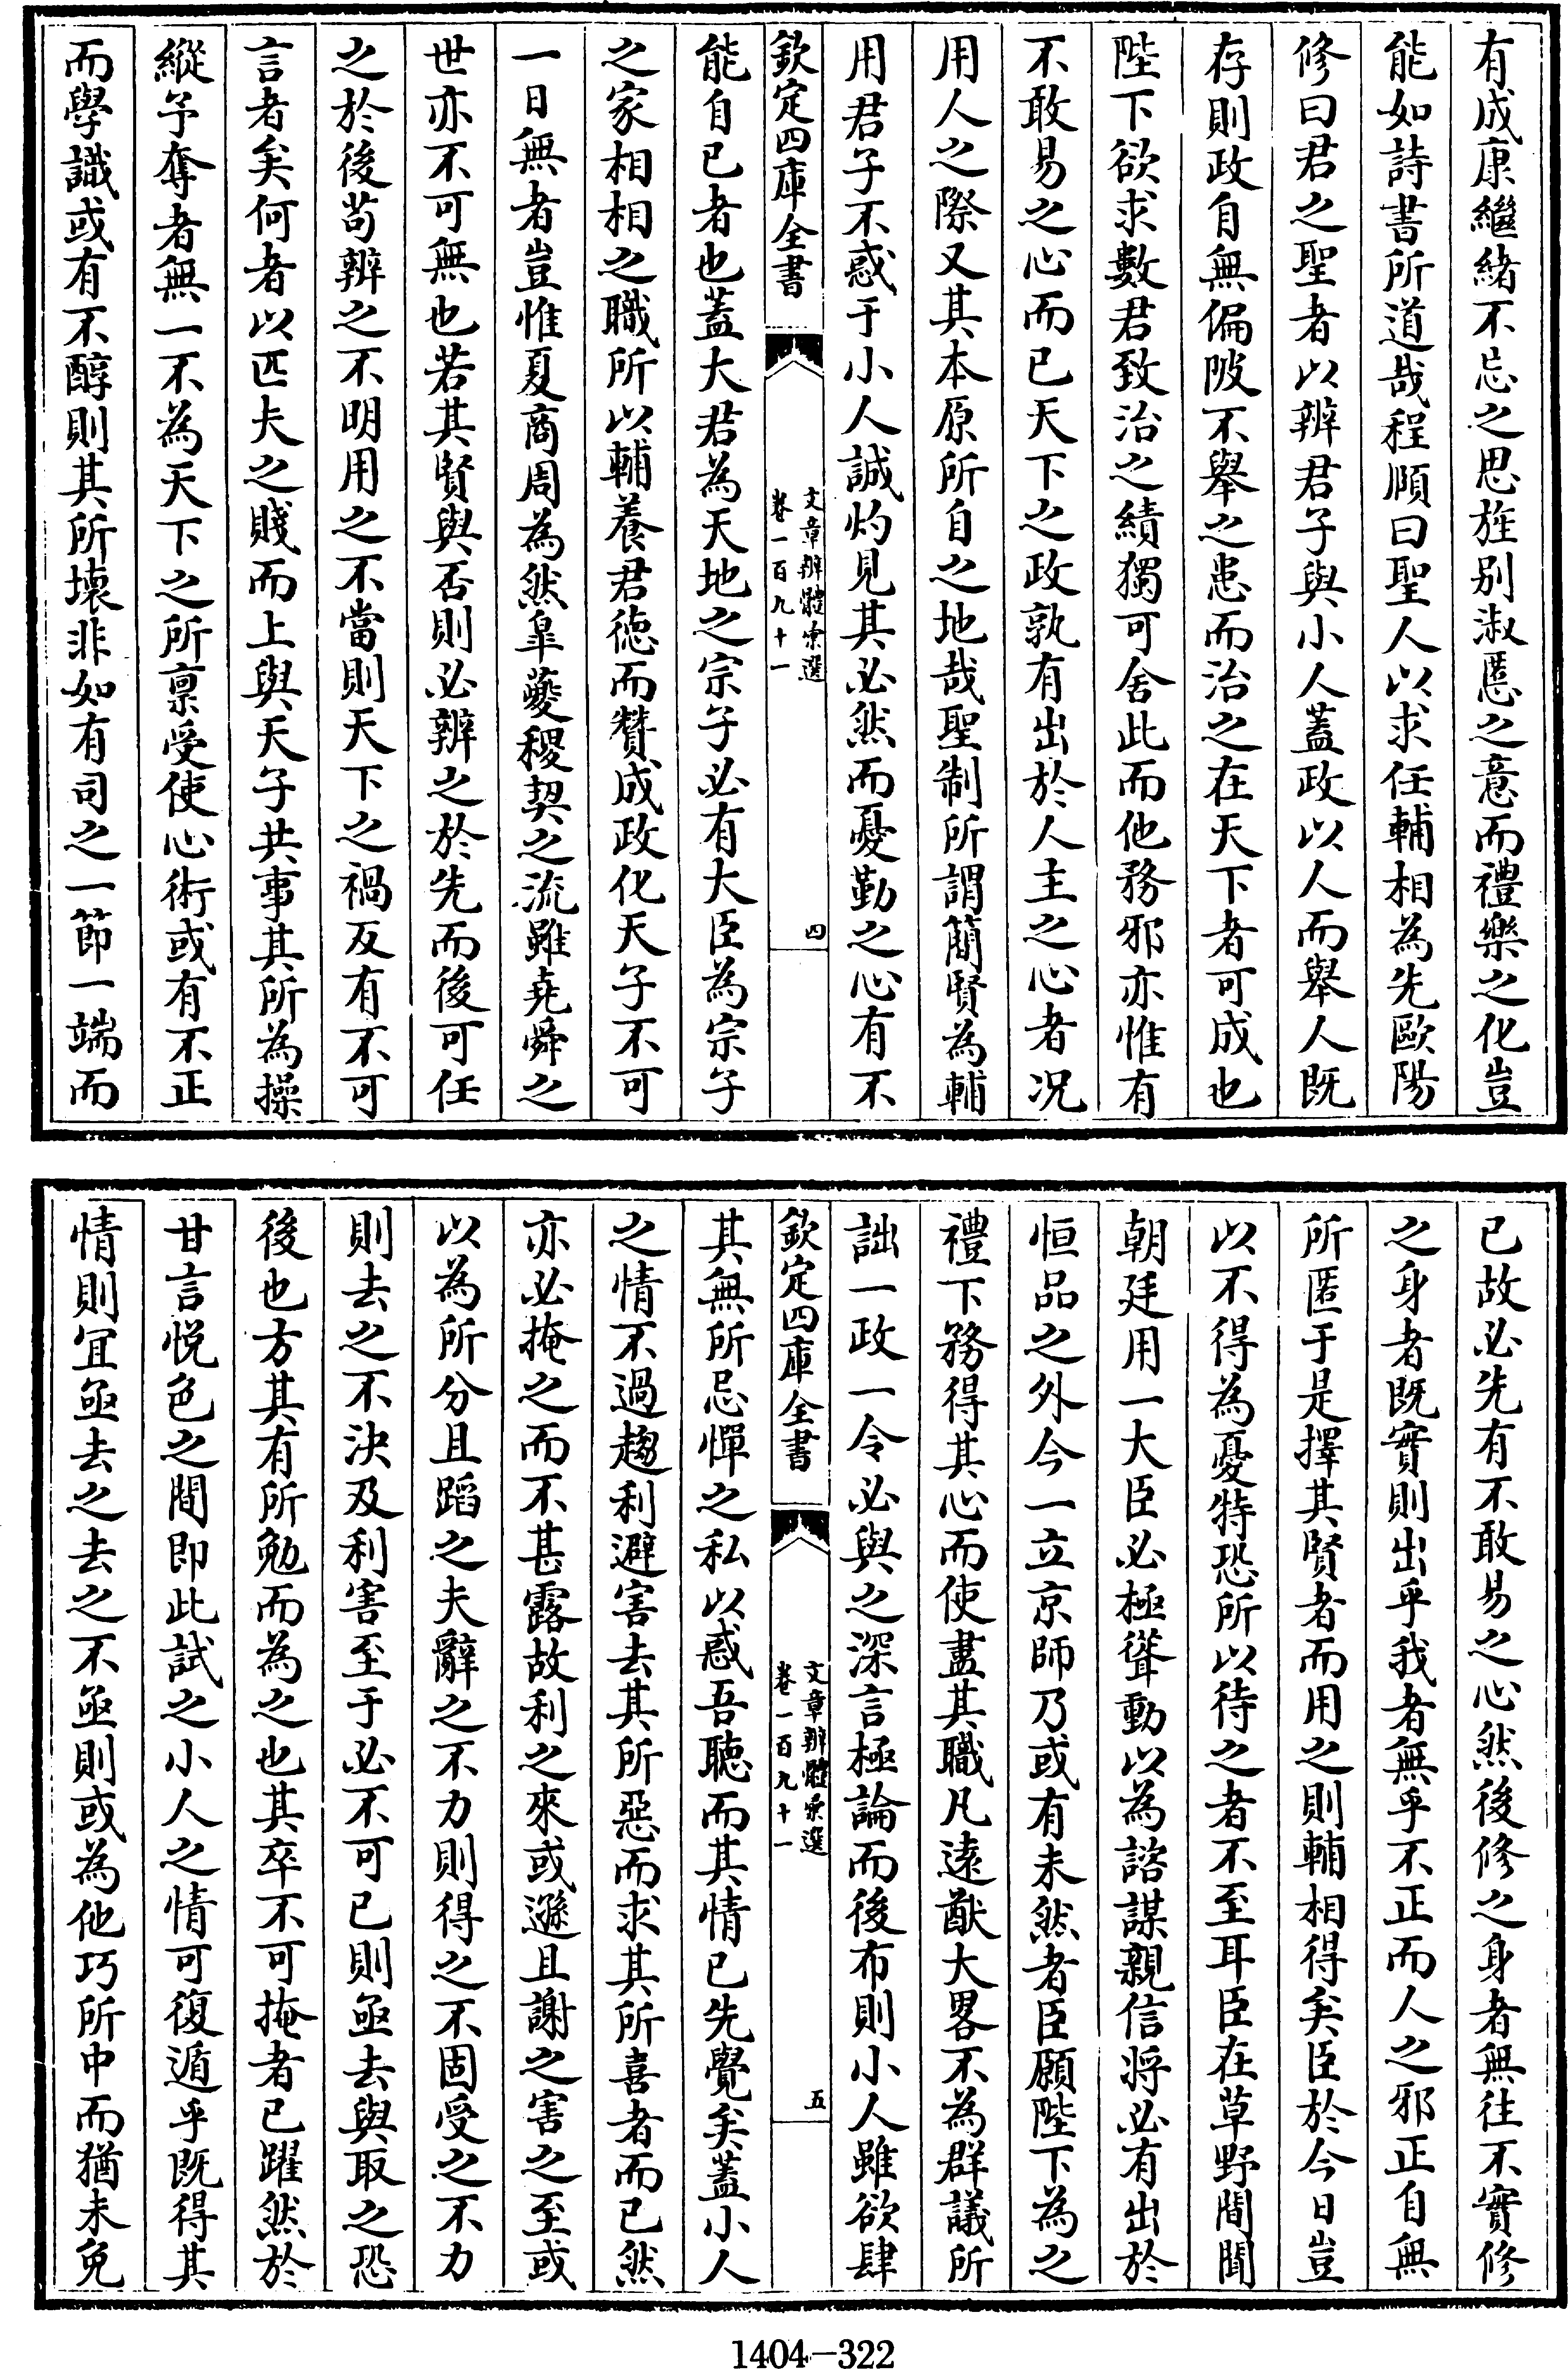 有成康繼緒不忘之思旌别淑慝之意而禮樂之化豈
能如詩書所道哉程頤曰聖人以求任輔相為先歐陽
修曰君之聖者以辨君子與小人蓋政以人而舉人既
存則政自無偏陂不舉之患而治之在天下者可成也
陛下欲求數君致治之績獨可舍此而他務邪亦惟有
不敢易之心而已天下之政孰有出於人主之心者况
用人之際又其本原所自之地哉聖制所謂簡賢為輔
用君子不惑于小人誠灼見其必然而憂勤之心有不
欽定四庫全書
文章辨體彚選
卷一百九十一
四
能自已者也蓋大君為天地之宗子必有大臣為宗子
之家相相之職所以輔養君德而贊成政化天子不可
一日無者豈惟夏商周為然臯夔稷契之流雖堯舜之
世亦不可無也若其賢與否則必辨之於先而後可任
之於後苟辨之不明用之不當則天下之禍反有不可
言者矣何者以匹夫之賤而上與天子共事其所為操
縱予奪者無一不為天下之所禀受使心術或有不正
而學識或有不醇則其所壞非如有司之一節一端而
已故必先有不敢易之心然後修之身者無往不實修
之身者既實則出乎我者無乎不正而人之邪正自無
所匿于是擇其賢者而用之則輔相得矣臣於今日豈
以不得為憂特恐所以待之者不至耳臣在草野間聞
朝廷用一大臣必極聳動以為諮謀親信將必有出於
恒品之外今一立京師乃或有未然者臣願陛下為之
禮下務得其心而使盡其職凡遠猷大畧不為群議所
詘一政一令必與之深言極論而後布則小人雖欲肆
欽定四庫全書
文章辨體彚選
卷一百九十一
五
其無所忌憚之私以惑吾聽而其情已先覺矣蓋小人
之情不過趨利避害去其所惡而求其所喜者而已然
亦必掩之而不甚露故利之來或遜且謝之害之至或
以為所分且蹈之夫辭之不力則得之不固受之不力
則去之不決及利害至于必不可已則亟去與取之恐
後也方其有所勉而為之也其卒不可掩者已躍然於
甘言悦色之間即此試之小人之情可復遁乎既得其
情則宜亟去之去之不亟則或為他巧所中而猶未免
1404-322